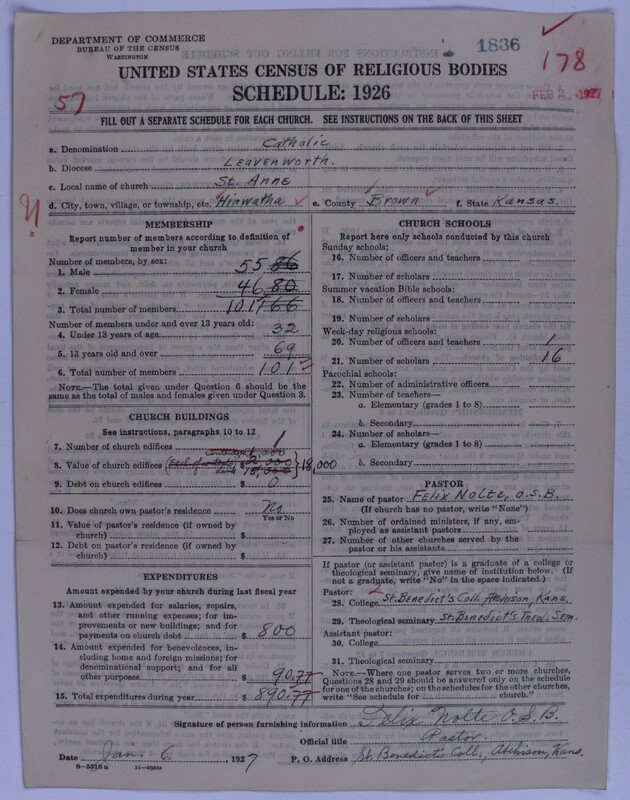 DEPARTMENT OF COMMERCE
BUREAU OF THE CENSUS
WASHINGTON
1836
178
UNITED STATES CENSUS OF RELIGIOUS BODIES
SCHEDULE: 1926
FEB 2 1927
57
FILL OUT A SEPARATE SCHEDULE FOR EACH CHURCH. SEE INSTRUCTIONS ON THE BACK OF THIS SHEET
a. Denomination Catholic
b. Diocese Leavenworth.
c. Local name of church St. Anne
d. City, town, village, or township, etc. Hiawatha e. County Brown f. State Kansas.
MEMBERSHIP
Report number of members according to definition of member in your church
Number of members, by sex:
1. Male 55 86
2. Female 46 80
3. Total number of members 101 166
Number of members under and over 13 years old:
4. Under 13 years of age 32
5. 13 years old and over 69
6. Total number of members 101
NOTE.—The total given under Question 6 should be the same as the total of males and females given under Question 3.
CHURCH BUILDINGS
See instructions, paragraphs 10 to 12
7. Number of church edifices 1
8. Value of church edifices $ 18,000
9. Debt on church edifices $ 0
10. Does church own pastor's residence No
Yes or No
11. Value of pastor's residence (if owned by church) $
12. Debt on pastor's residence (if owned by church) $
EXPENDITURES
Amount expended by your church during last fiscal year
13. Amount expended for salaries, repairs, and other running expenses; for improvements or new buildings; and for payments on church debt $ 800
14. Amount expended for benevolences, including home and foreign missions; for denominational support; and for all other purposes $ 90.77
15. Total expenditures during year $ 890.77
CHURCH SCHOOLS
Report here only schools conducted by this church
Sunday schools:
16. Number of officers and teachers
17. Number of scholars
Summer vacation Bible schools:
18. Number of officers and teachers
19. Number of scholars
Week-day religious schools:
20. Number of officers and teachers 1
21. Number of scholars 16
Parochial schools:
22. Number of administrative officers
23. Number of teachers—
a. Elementary (grades 1 to 8)
b. Secondary
24. Number of scholars—
a. Elementary (grades 1 to 8)
b. Secondary
PASTOR
25. Name of pastor Felix Nolte, O.S.B.
(If church has no pastor, write "None")
26. Number of ordained ministers, if any, employed as assistant pastors
27. Number of other churches served by the pastor or his assistants
If pastor (or assistant pastor) is a graduate of a college or theological seminary, give name of institution below. (If not a graduate, write "No" in the space indicated.)
Pastor: 2
28. College St. Benedict's Coll. Atchison, Kans.
29. Theological seminary St. Benedict's Theol. Sem.
Assistant pastor:
30. College
31. Theological seminary
NOTE.—Where one pastor serves two or more churches, Questions 28 and 29 should be answered only on the schedule for one of the churches; on the schedules for the other churches, write "See schedule for church."
Signature of person furnishing information Felix Nolte O.S.B.
Official title Pastor.
Date Jan. 6, 1927 P. O. Address St. Benedict's Coll., Atchison, Kans.
8—5218a 11—9034a